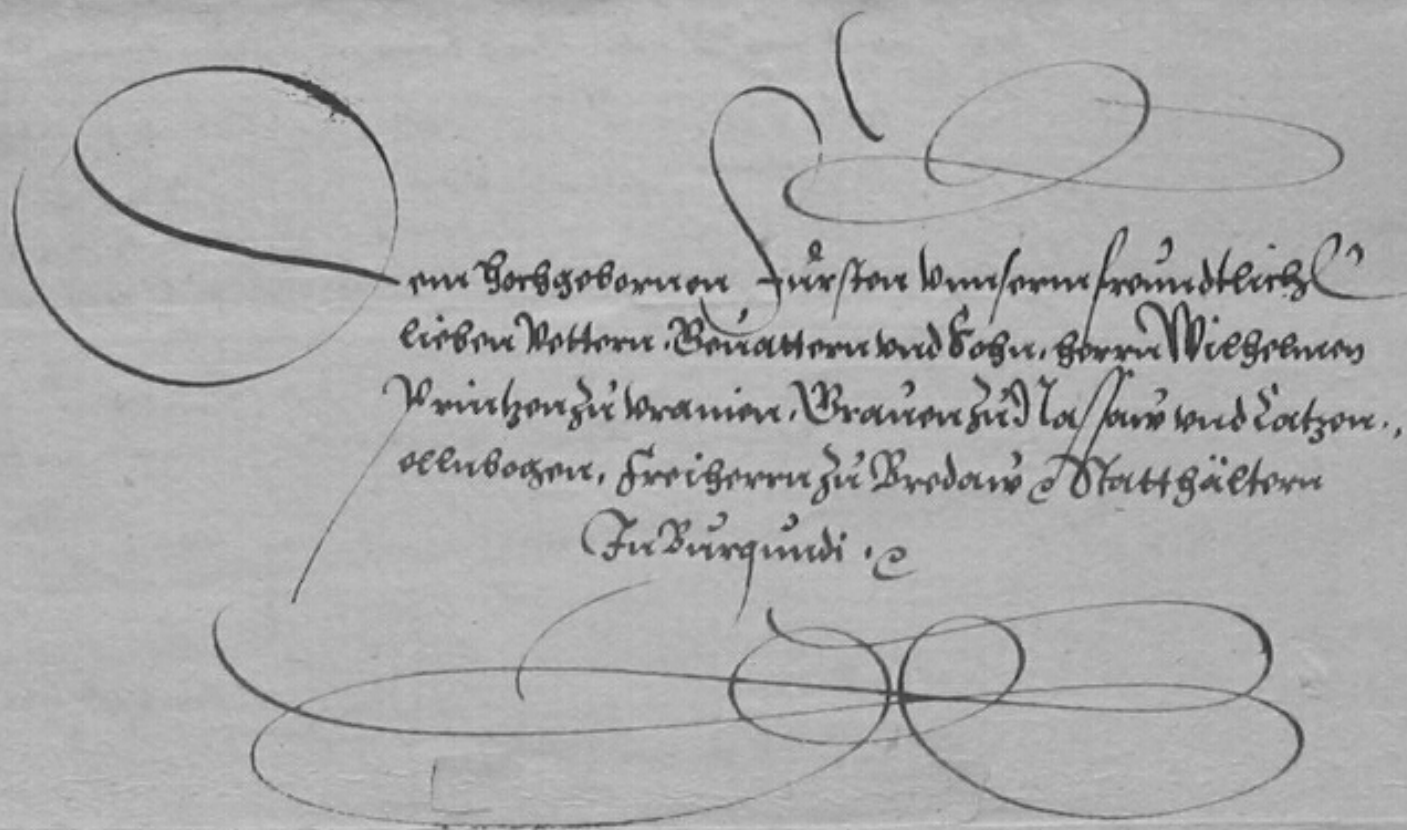 Dem Hochgebornen Fürsten vnnserm freundtlichen
lieben Vettern, Geuattern vnd Sohn, herrn Wilhelmen
Printzen zu Vranien, Grauen zu Nassaw vnd Catzen,,
ellnbogen, Freiherrn zu Bredaw ꝛc Statthältern
In Burgundi .ꝛc